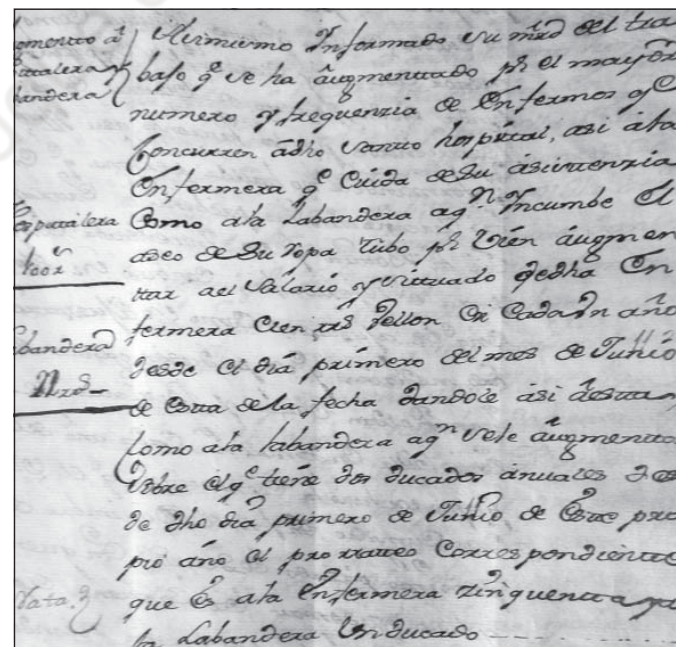 Aumento á
Hospitalera y
labandera
Asimismo Informado su mrd del tra
bajo qe se ha áugmentado pr el mayor
numero y frequenzia de Enfermos qe
Concurren ádho santto hospittal, asi á la
Enfermera qe Cuida de su ásisttenzia
Como ala Labandera aqn Incumbe el
aseo de su ropa tubo pr bien áugmen
ttar ael salário y situado qe dha En
fermera Cien rrs Vellon en Cada un año
desde el diá primero del mes de Junio
de estta de la fecha dandole ási áesta
Como ala labandera aqn se le áugmentta
sobre el qe tiene dos ducados ánuales des
de dho diá primero de Junio de Este pro
pio año el prorratteo Correspondientte
que és ala Enfermera zinquentta y a
la Labandera Un ducado
Hospitalera
100 rr
labandera
rrs